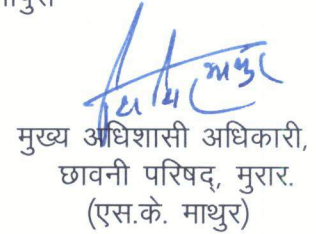 मुख्य अधिशासी अधिकारी,
छावनी परिषद्, मुरार.
(एस.के. माथुर)